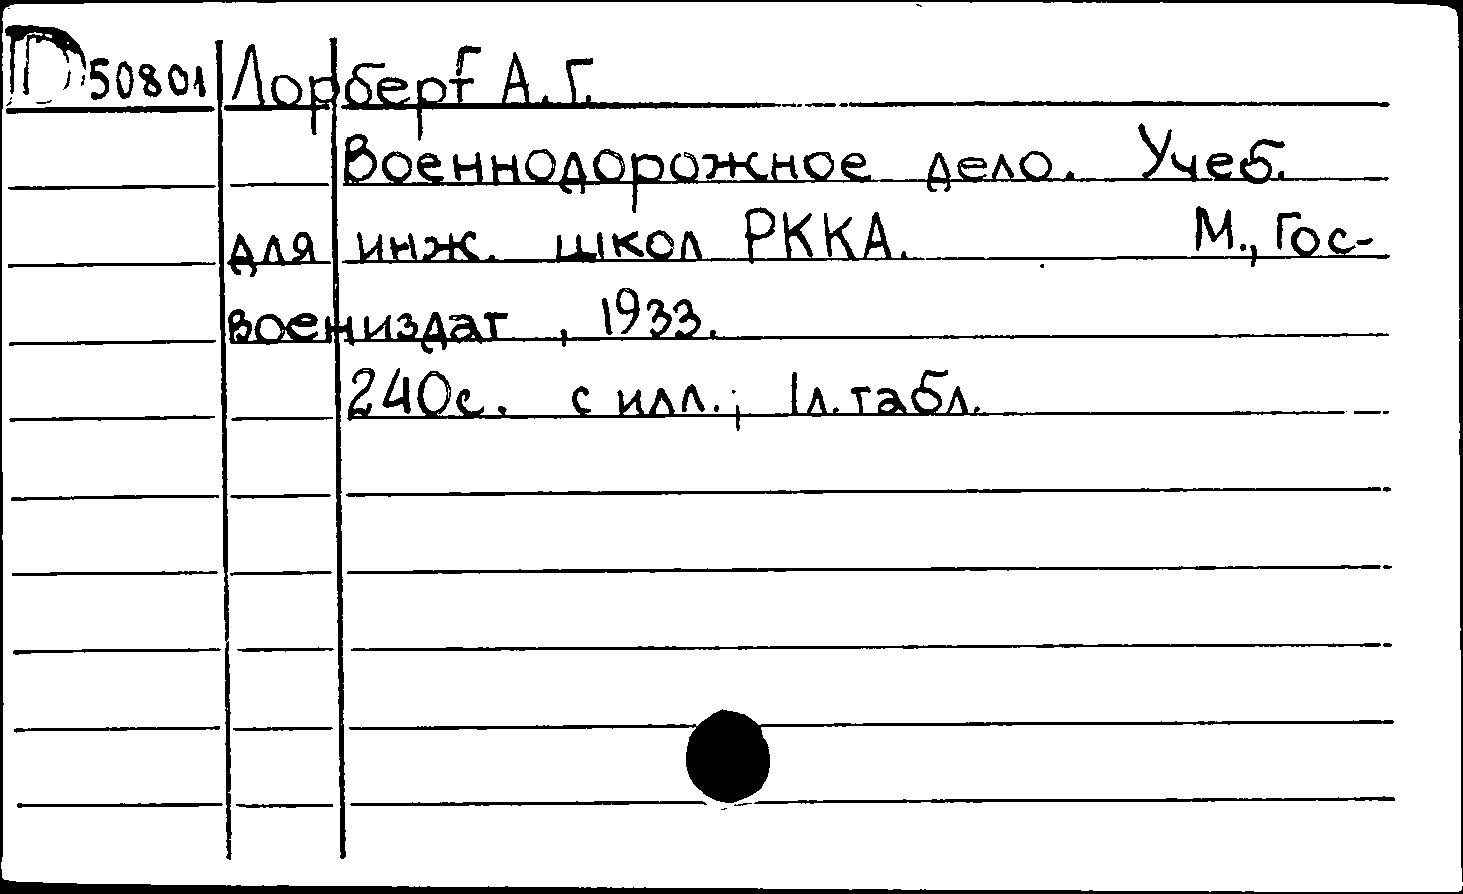 D 50801 Лорберг А.Г.
Военнодорожное дело. Учеб.
для инж. школ РККА. М., Гос-
воениздат, 1933.
240с. с илл.; 1л. табл.